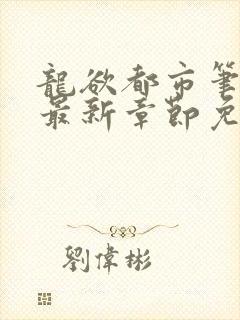 龍欲都市筆
最新章節免
劉偉彬